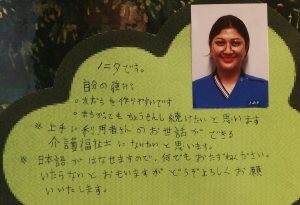 ノニタです。
自分の強さ
○友だちを作りやすいです
○まちがってもちょうせんし続けたいと思います
※上手に利用者さんのお世話ができる
介護福祉士になりたいと思います。
※日本語がはなせますので、何でもおたずねください。
いたらないとおもいますがどうぞよろしくお願
いいたします。